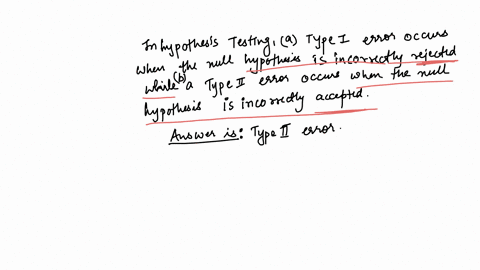 In hypothesis Testing, (a) Type I error occurs
when the null hypothesis is incorrectly rejected
while (b) a Type II error occurs when the null
hypothesis is incorrectly accepted.
Answer is: Type II error.